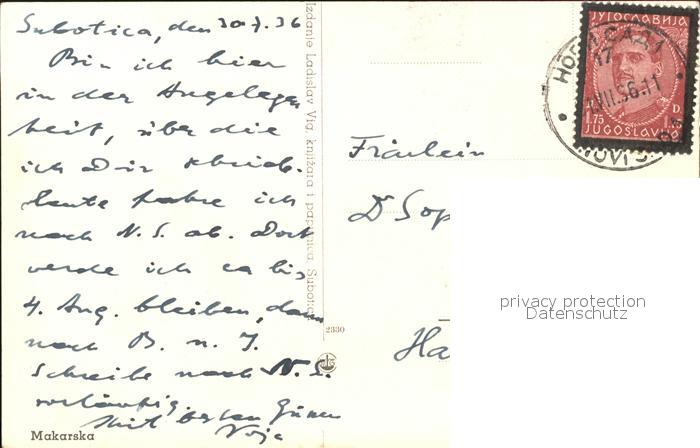 Subotica, den 30.7.36
Bin ich hier
in der Angelegen
heit, über die
ich Dir schrieb.
Heute fahre ich
nach N.S. ab. Dort
werde ich ca bis
4. Aug. bleiben, dann
nach B. n. J.
Schreibe nach N.S.
vorläufig.
Mit besten Grüssen
Voja
Makarska
Izdanje Ladislav Vig, knjižara i papirnica, Subotica
2330
ЈУГОСЛАВИЈА
1.75
D.
JUGOSLAVIJA
НОВИ САД 1
17
VII.36.11
NOVI SAD 1
Fräulein
D Sop
Ha
privacy protection
Datenschutz